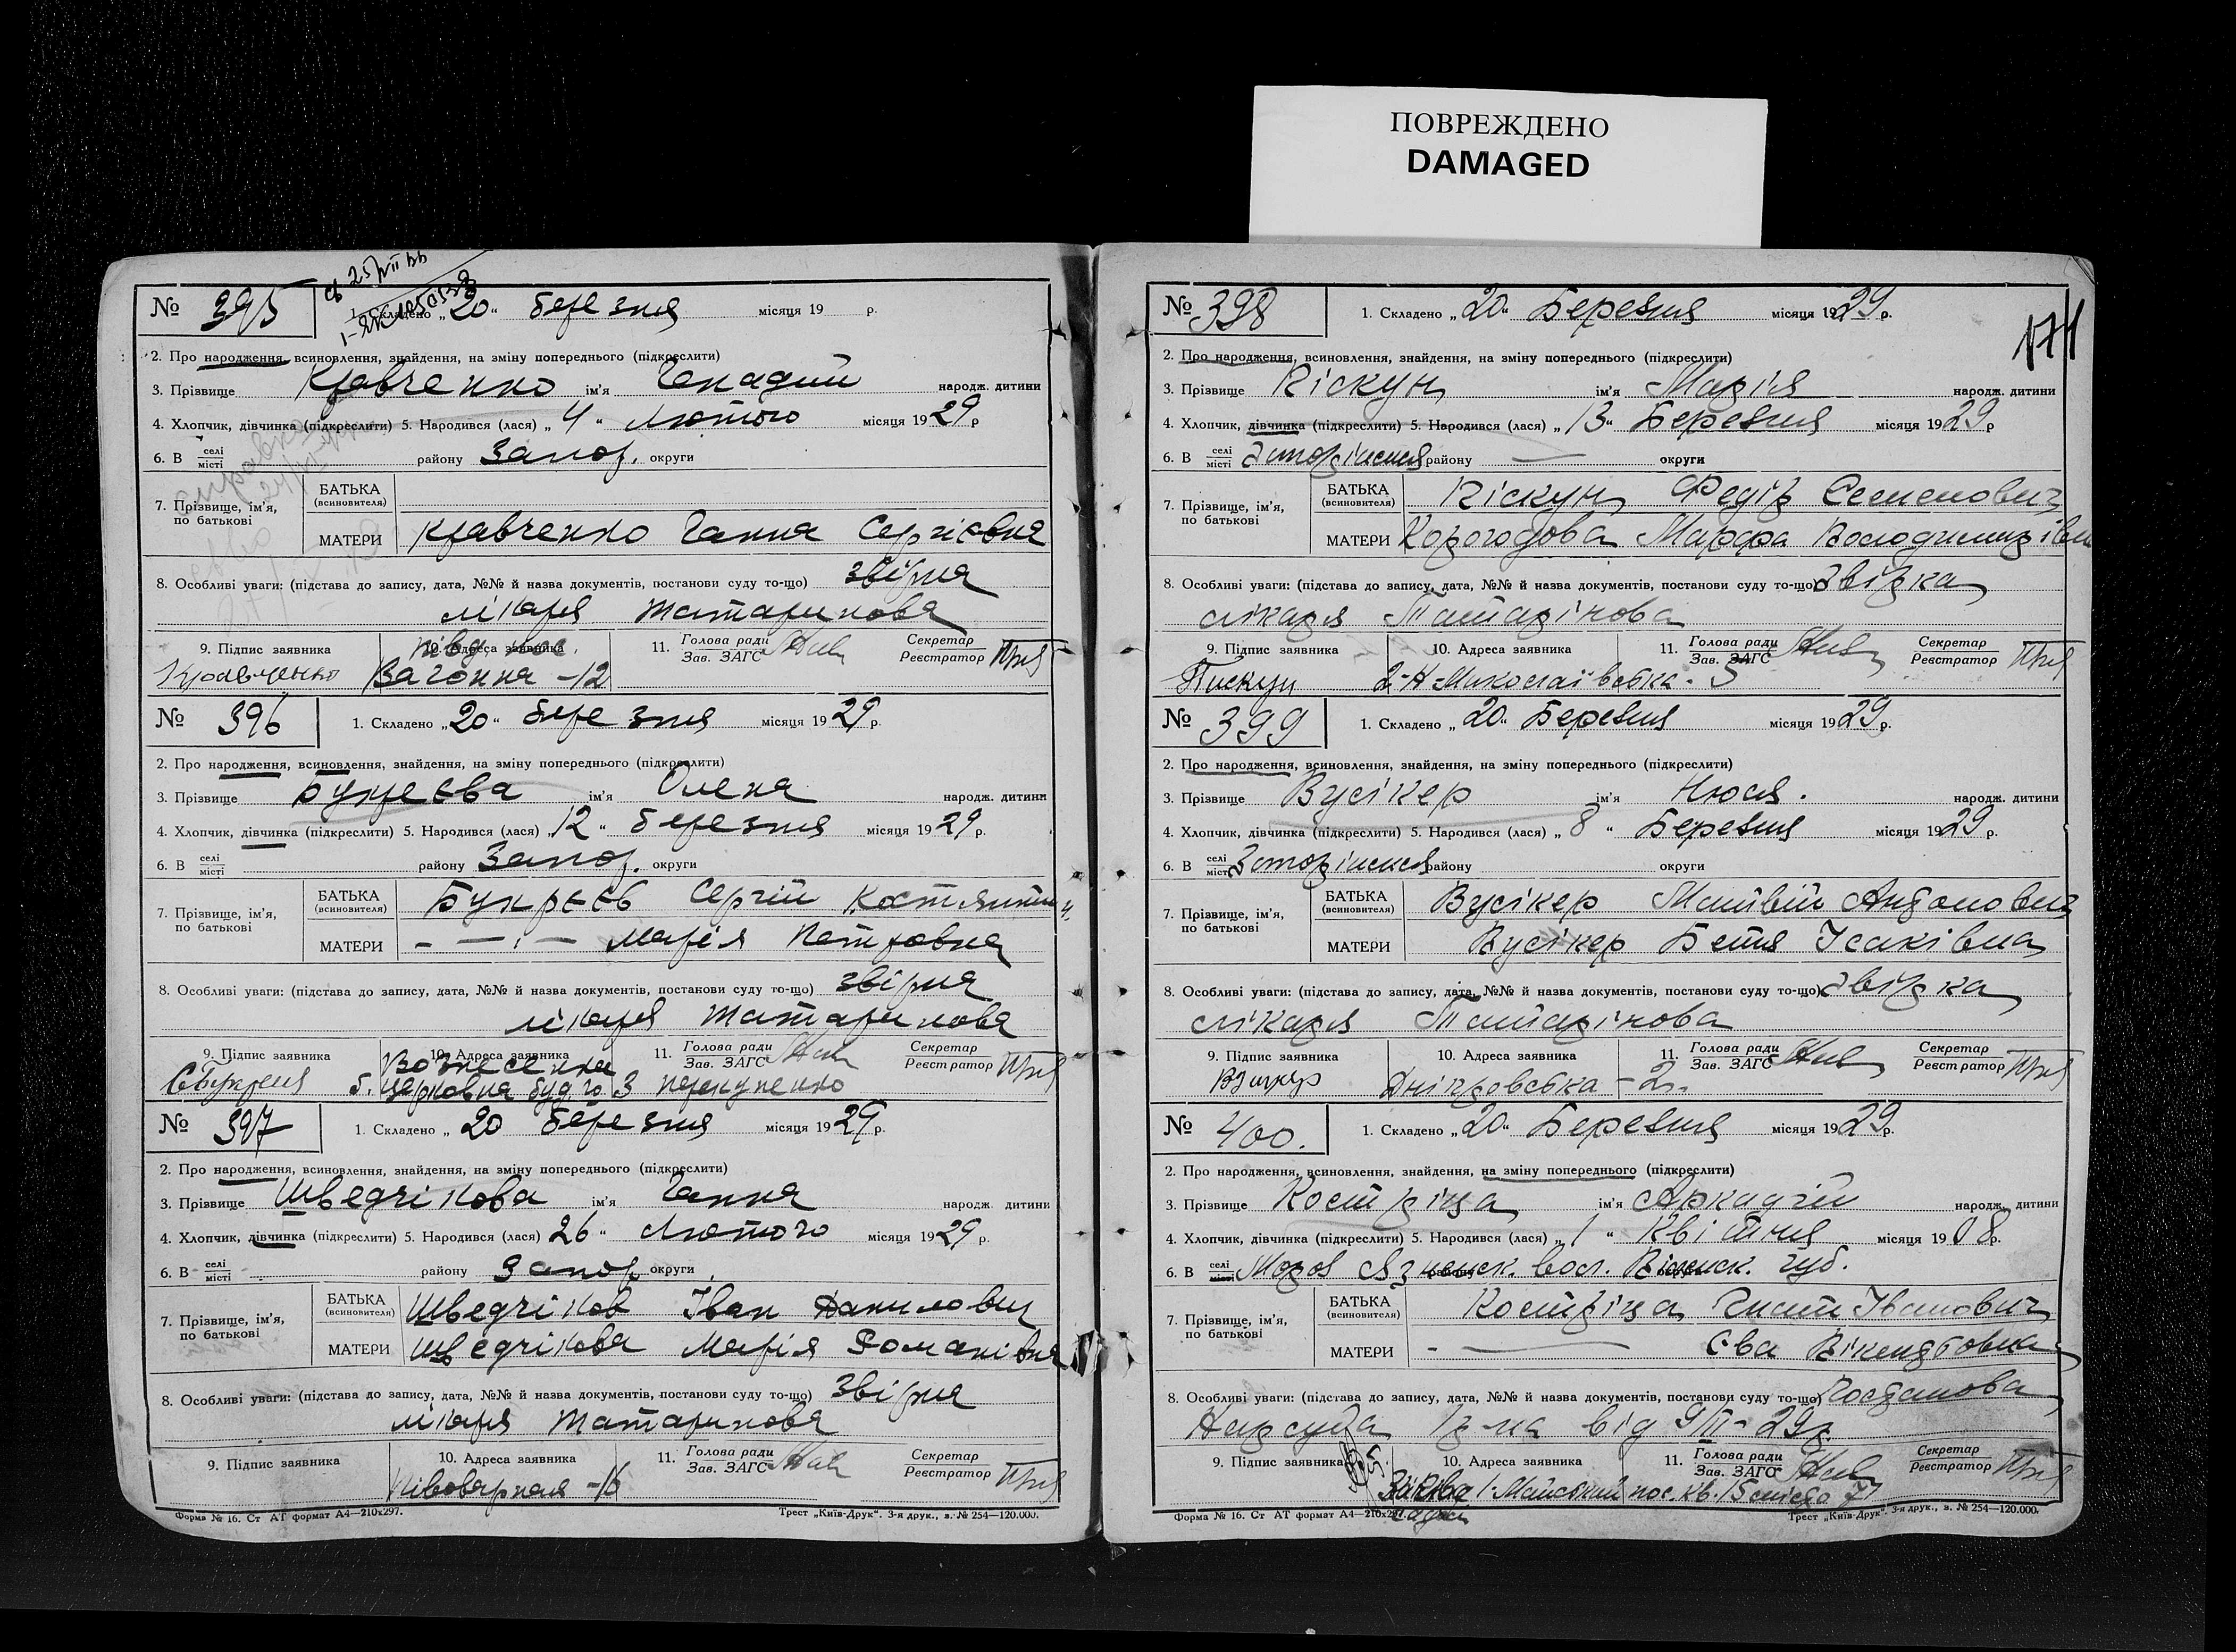 ПОВРЕЖДЕНО
DAMAGED
№ 395
1. Складено „20“ березня місяця 19 р.
2. Про народження, всиновлення, знайдення, на зміну попереднього (підкреслити)
3. Прізвище Кравченко ім'я Генадій народж. дитини
4. Хлопчик, дівчинка (підкреслити) 5. Народився (лася) „4“ Лютого місяця 1929 р
6. В селі місті району Запор. округи
7. Прізвище, ім'я, по батькові
БАТЬКА (всиновителя)
МАТЕРИ Кравченко Ганна Сергієвна
8. Особливі уваги: (підстава до запису, дата, №№ й назва документів, постанови суду то-що) звірка
лікаря Татаринова
9. Підпис заявника 10. Адреса заявника 11. Голова ради Зав. ЗАГС Секретар Реєстратор
Кравченко Вагонна -12
№ 396
1. Складено „20“ березня місяця 1929 р.
2. Про народження, всиновлення, знайдення, на зміну попереднього (підкреслити)
3. Прізвище Букреєва ім'я Олена народж. дитини
4. Хлопчик, дівчинка (підкреслити) 5. Народився (лася) „12“ березня місяця 1929 р.
6. В селі місті району Запор. округи
7. Прізвище, ім'я, по батькові
БАТЬКА (всиновителя) Букреєв Сергій
МАТЕРИ - — „ — Марія Петровна
8. Особливі уваги: (підстава до запису, дата, №№ й назва документів, постанови суду то-що) звірка
лікаря Татаринова
9. Підпис заявника 10. Адреса заявника 11. Голова ради Зав. ЗАГС Секретар Реєстратор
Вознесенка
церковна буд. 3
№ 397
1. Складено „20 березня місяця 1929 р.
2. Про народження, всиновлення, знайдення, на зміну попереднього (підкреслити)
3. Прізвище Шведчікова ім'я Ганна народж. дитини
4. Хлопчик, дівчинка (підкреслити) 5. Народився (лася) 26“ Лютого місяця 1929 р.
6. В селі місті району Запор округи
7. Прізвище, ім'я, по батькові
БАТЬКА (всиновителя) Шведчіков Іван Данилович
МАТЕРИ Шведчікова Марія Романівна
8. Особливі уваги: (підстава до запису, дата, №№ й назва документів, постанови суду то-що) звірка
лікаря Татаринова
9. Підпис заявника 10. Адреса заявника 11. Голова ради Зав. ЗАГС Секретар Реєстратор
Півоварная -16
Форма № 16. Ст АТ формат А4—210х297. Трест „Київ-Друк“. 3-я друк., в. № 254—120.000.
171
№ 398
1. Складено „20“ Березня місяця 1929 р.
2. Про народження, всиновлення, знайдення, на зміну попереднього (підкреслити)
3. Прізвище Піскун ім'я Марія народж. дитини
4. Хлопчик, дівчинка (підкреслити) 5. Народився (лася) „13“ Березня місяця 1929 р
6. В селі місті Запоріжжя району — округи
7. Прізвище, ім'я, по батькові
БАТЬКА (всиновителя) Піскун Федір Семенович
МАТЕРИ Корогодова Марфа Володимирівна
8. Особливі уваги: (підстава до запису, дата, №№ й назва документів, постанови суду то-що) Звірка
лікаря Татарінова
9. Підпис заявника 10. Адреса заявника 11. Голова ради Зав. ЗАГС Секретар Реєстратор
Пискун 2-а Миколаївська - 5
№ 399
1. Складено „20“ Березня місяця 1929 р.
2. Про народження, всиновлення, знайдення, на зміну попереднього (підкреслити)
3. Прізвище Вусікер ім'я Нюся. народж. дитини
4. Хлопчик, дівчинка (підкреслити) 5. Народився (лася) „8“ Березня місяця 1929 р.
6. В селі місті Запоріжжя району округи
7. Прізвище, ім'я, по батькові
БАТЬКА (всиновителя) Вусікер Матвій Антонович
МАТЕРИ Вусікер Бетя Ісаківна
8. Особливі уваги: (підстава до запису, дата, №№ й назва документів, постанови суду то-що) Звірка
лікаря Татарінова
9. Підпис заявника 10. Адреса заявника 11. Голова ради Зав. ЗАГС Секретар Реєстратор
Дніпровська - 2
№ 400.
1. Складено „20“ Березня місяця 1929 р.
2. Про народження, всиновлення, знайдення, на зміну попереднього (підкреслити)
3. Прізвище Костріца ім'я Аркадій народж. дитини
4. Хлопчик, дівчинка (підкреслити) 5. Народився (лася) „1“ Квітня місяця 1908 р.
6. В селі місті району вол. округи губ.
7. Прізвище, ім'я, по батькові
БАТЬКА (всиновителя) Костріца Гнат Іванович
МАТЕРИ - — Єва Вікентьовна
8. Особливі уваги: (підстава до запису, дата, №№ й назва документів, постанови суду то-що) Постанова
Нарсуда від 9/III-29р.
9. Підпис заявника 10. Адреса заявника 11. Голова ради Зав. ЗАГС Секретар Реєстратор
1 Майський пос. кв. 15
Форма № 16. Ст АТ формат А4—210х297. Трест „Київ-Друк“. 3-я друк., в. № 254—120.000.